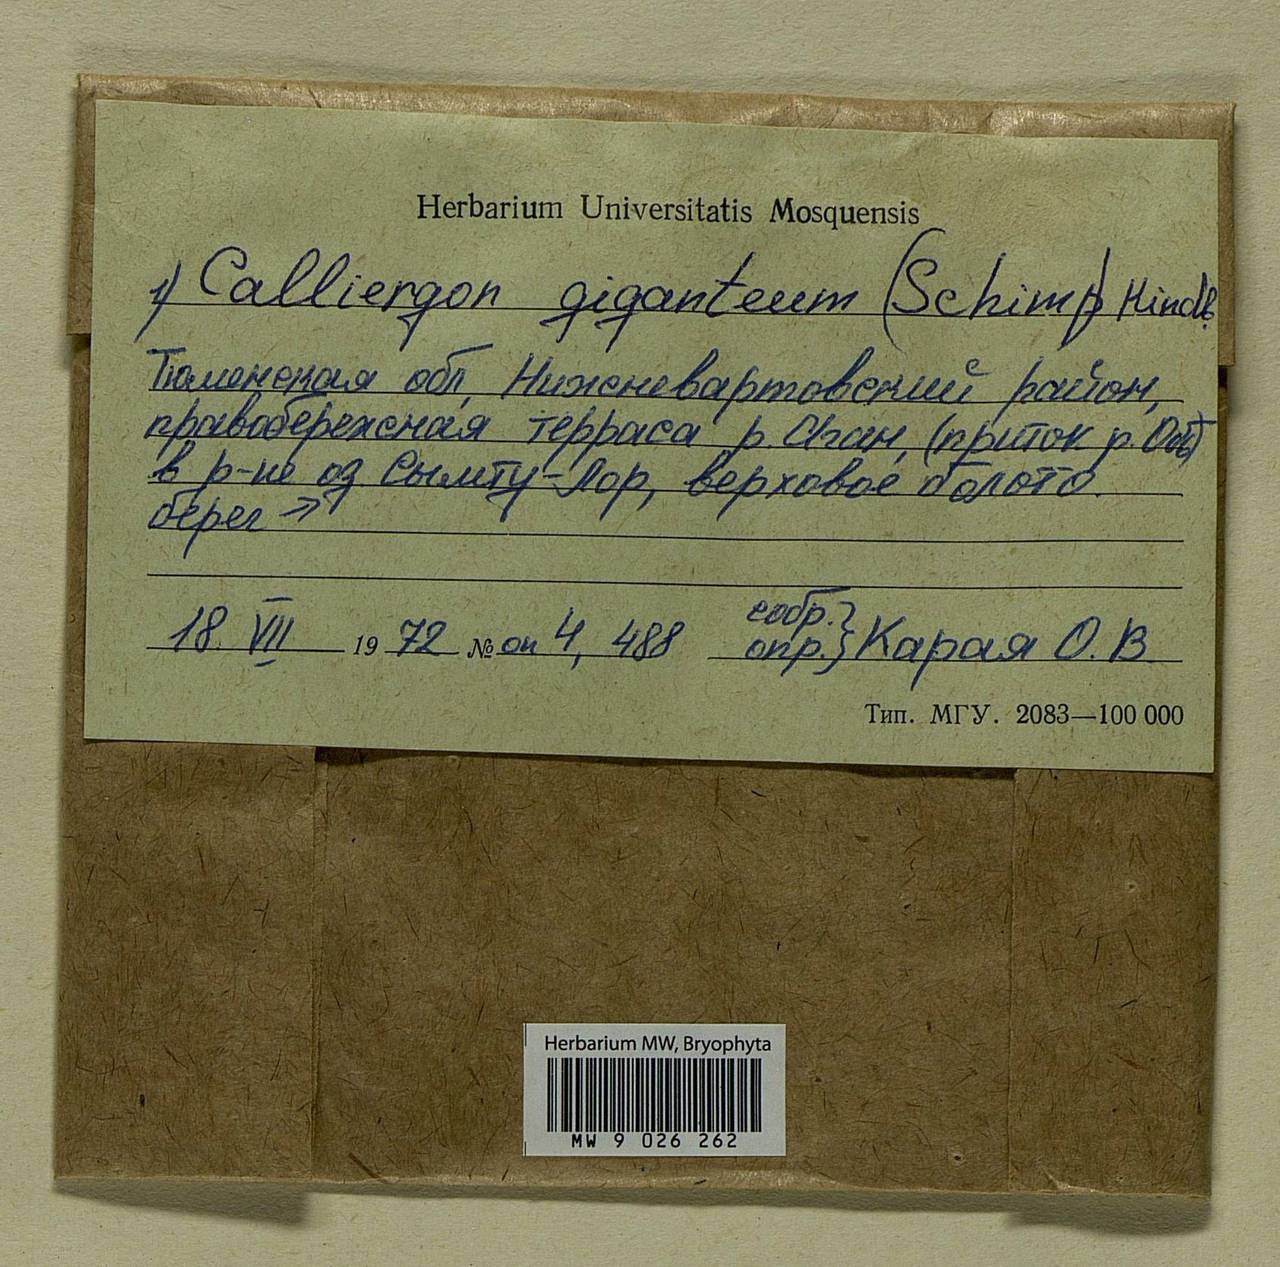 Herbarium Universitatis Mosquensis
1) Calliergon giganteum (Schimp) Kindb.
Тюменская обл, Нижневартовский район,
правобережная терраса р. Аган, (приток р. Обь)
в р-не оз Сымту-Лор, верховое болото.
берег
18. VII 1972 № оп 4, 488 собр. } опр. } Карая О. В.
Тип. МГУ. 2083—100 000
Herbarium MW, Bryophyta
MW 9 026 262